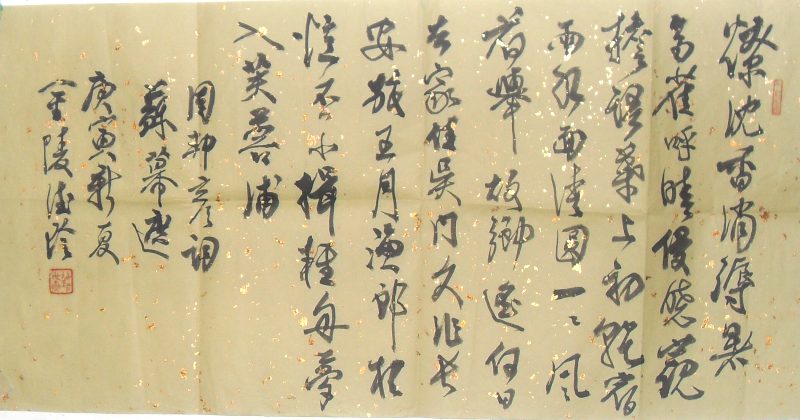 燎沈香消溽暑
鳥雀呼晴侵曉窺
檐語葉上初乾宿
雨水面清圓一一風
荷舉故鄉遙何日
去家住吳門久作長
安旅五月漁郎相
憶否小楫輕舟夢
入芙蓉浦
周邦彥詞
蘇幕遮
庚寅新夏
金陵